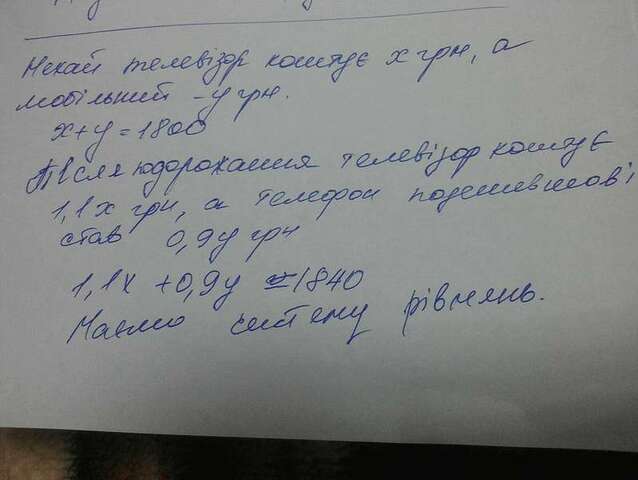 Нехай телевізор коштує x грн, а
мобільний - y грн.
x+y=1800
Після подорожання телевізор коштує
1,1x грн, а телефон
став 0,9y грн
1,1x +0,9y =1840
Маємо систему рівнянь.